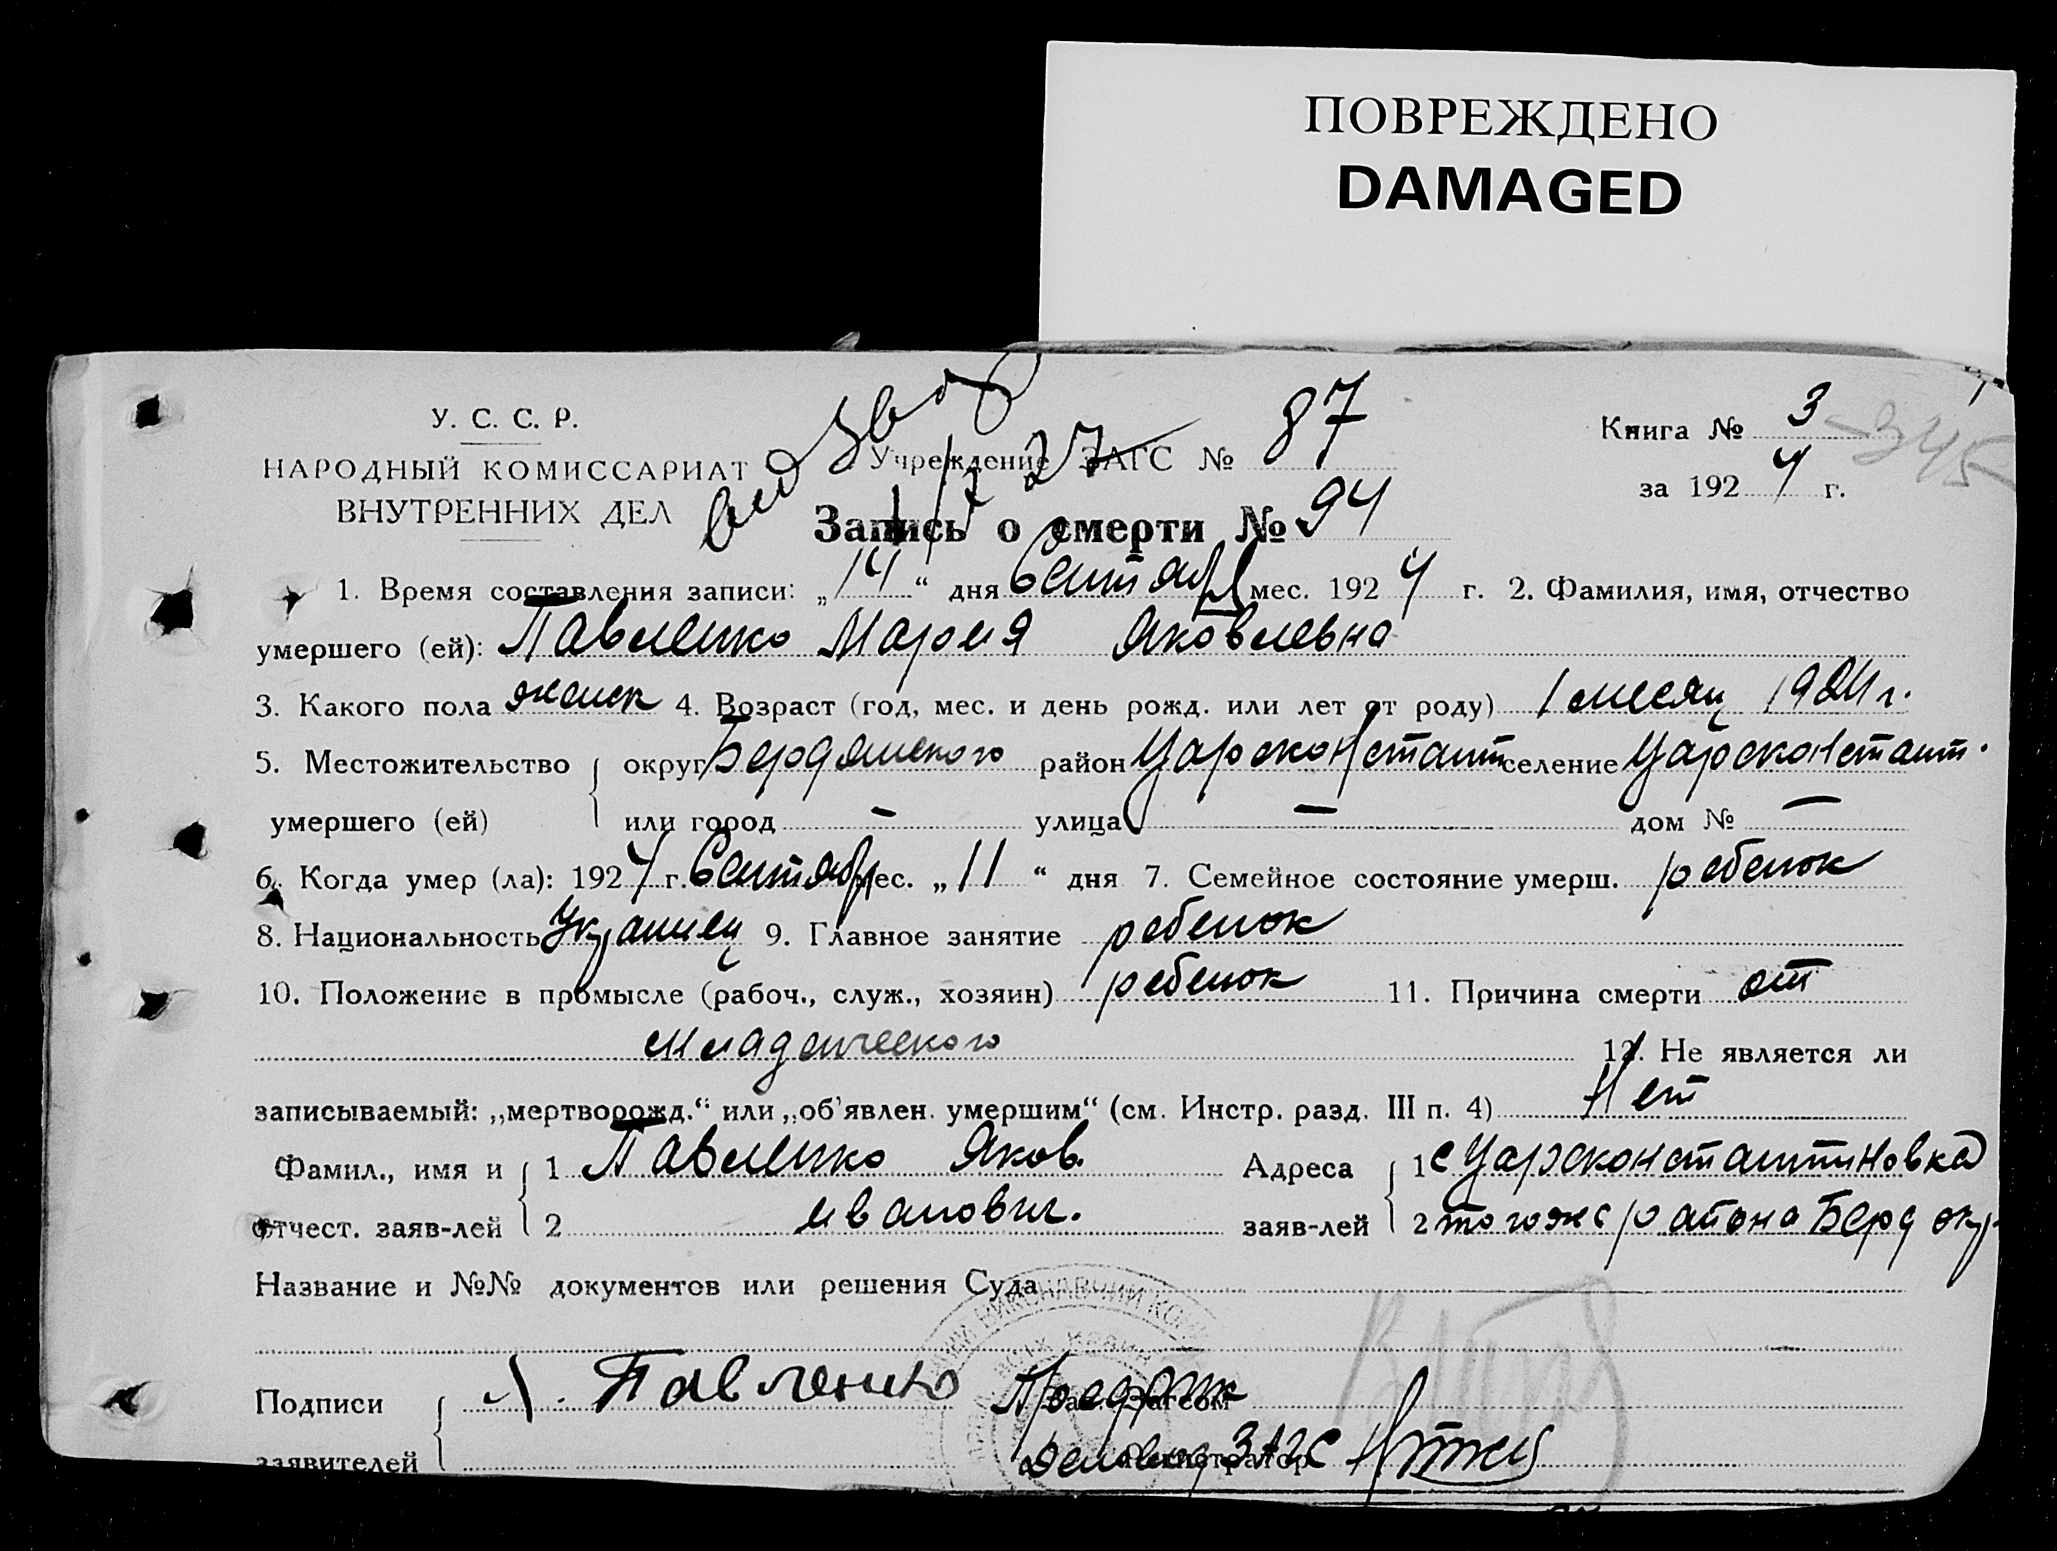 ПОВРЕЖДЕНО
DAMAGED
У. С. С. Р.
НАРОДНЫЙ КОМИССАРИАТ
ВНУТРЕННИХ ДЕЛ
Учреждение ЗАГС № 87
Книга № 3
345
за 1924 г.
Запись о смерти № 94
1. Время составления записи: „14“ дня Сентября мес. 1924 г. 2. Фамилия, имя, отчество
умершего (ей): Павленко Мария Яковлевна
3. Какого пола женск 4. Возраст (год, мес. и день рожд. или лет от роду) 1 месяц 1924 г.
5. Местожительство округ Бердянского район Царсконстант селение Царсконстант.
умершего (ей) или город — улица — дом № —
6. Когда умер (ла): 1924 г. Сентября мес. „11“ дня 7. Семейное состояние умерш. ребенок
8. Национальность Украинец 9. Главное занятие ребенок
10. Положение в промысле (рабоч., служ., хозяин) ребенок 11. Причина смерти от
младенческого 12. Не является ли
записываемый: „мертворожд.“ или „об'явлен. умершим“ (см. Инстр. разд. III п. 4) Нет
Фамил., имя и 1 Павленко Яков. Адреса 1 с Царсконстантиновка
отчест. заяв-лей 2 иванович. заяв-лей 2 тогоже района Берд окр.
Название и №№ документов или решения Суда
Подписи Я. Павленко
заявителей Регистратор ЗАГС